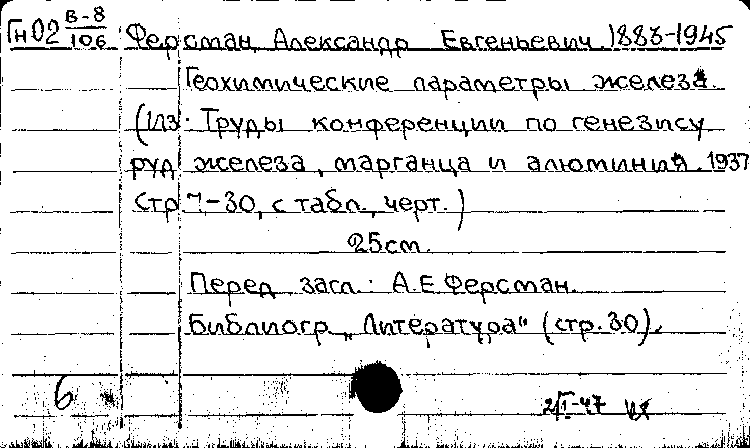 Гн02 В-8/106 Ферсман, Александр Евгеньевич. 1883-1945
Геохимические параметры железа.
(Из: Труды конференции по генезису
руд железа, марганца и алюминия. 1937
стр 7-30, с табл., черт.)
25см.
Перед загл.: А.Е.Ферсман.
Библиогр. „Литература" (стр.30).
6
2/I-47